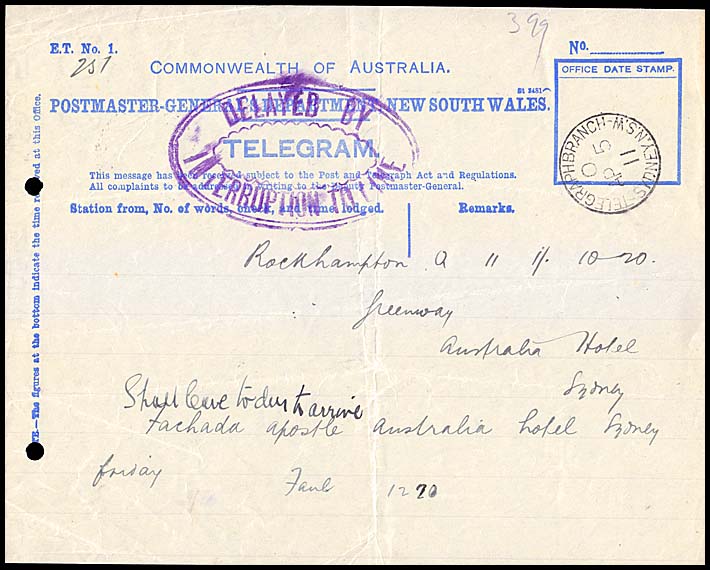 399
E.T. No. 1.
No.
251
COMMONWEALTH OF AUSTRALIA.
OFFICE DATE STAMP.
St 3481
POSTMASTER-GENERAL'S DEPARTMENT, NEW SOUTH WALES.
DELAYED BY
INTERRUPTION TO LINE
TELEGRAM
TELEGRAPH BRANCH-SYDNEY, N.S.W
This message has been received subject to the Post and Telegraph Act and Regulations.
All complaints to be addressed in writing to the Deputy Postmaster-General.
Station from, No. of words, check, and time lodged.
Remarks.
Rockhampton Q 11 1/. 10-20.
Greenway
Australia Hotel
Sydney
Shall leave to arrive
Tachada apostle australia hotel Sydney
friday
12
NOTE.—The figures at the bottom indicate the time received at this Office.